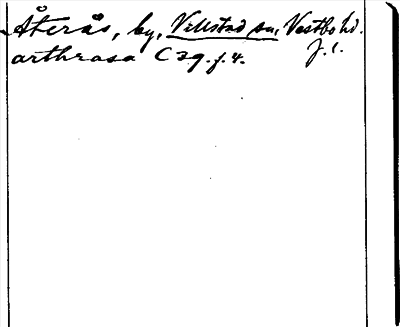 Återås, by, Villstad sn, Västbo hd.
J. l.
arthrasa C 29. f. 4.